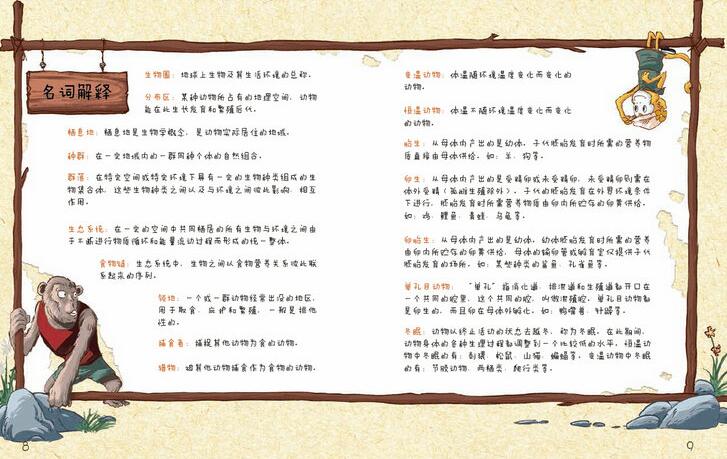 名词解释
生物圈：地球上生物及其生活环境的总称。
分布区：某种动物所占有的地理空间，动物
能在此生长发育和繁殖后代。
栖息地：栖息地是生物学概念，是动物实际居住的地域。
种群：在一定地域内的一群同种个体的自然组合。
群落：在特定空间或特定环境下具有一定的生物种类组成的生
物集合体，这些生物种类之间以及与环境之间彼此影响、相互
作用。
生态系统：在一定的空间中共同栖居的所有生物与环境之间由
于不断进行物质循环和能量流动过程而形成的统一整体。
食物链：生态系统中，生物之间以食物营养关系彼此联
系起来的序列。
领地：一个或一群动物经常出没的地区，
用于取食、庇护和繁殖，一般是排他
性的。
捕食者：捕捉其他动物为食的动物。
猎物：被其他动物捕食作为食物的动物。
8
变温动物：体温随环境温度变化而变化的
动物。
恒温动物：体温不随环境温度变化而变化
的动物。
胎生：从母体内产出的是幼体，子代胚胎发育时所需的营养物
质直接由母体供给。如：羊、狗等。
卵生：从母体内产出的是受精卵或未受精卵，未受精卵则需在
体外受精（孤雌生殖除外）。子代的胚胎发育在外界环境条件
下进行，胚胎发育时所需营养物质由卵内所贮存的卵黄供给。
如：鸡、鲤鱼、青蛙、乌龟等。
卵胎生：从母体内产出的是幼体，幼体胚胎发育时所需的营养
由卵内所贮存的卵黄供给，母体的输卵管或孵育室仅提供子代
胚胎发育的场所。如：某些种类的鲨鱼、孔雀鱼等。
单孔目动物：“单孔”指消化道、排泄道和生殖道都开口在
一个共同的腔里，这个共同的腔，叫做泄殖腔。单孔目动物都
是卵生的，而且卵在母体外孵化。如：鸭嘴兽、针鼹等。
冬眠：动物以终止活动的状态去越冬，称为冬眠。在此期间，
动物身体的各种生理过程都调整到一个比较低的水平。恒温动
物中冬眠的有：刺猬、松鼠、山猫、蝙蝠等。变温动物中冬眠
的有：节肢动物、两栖类、爬行类等。
9